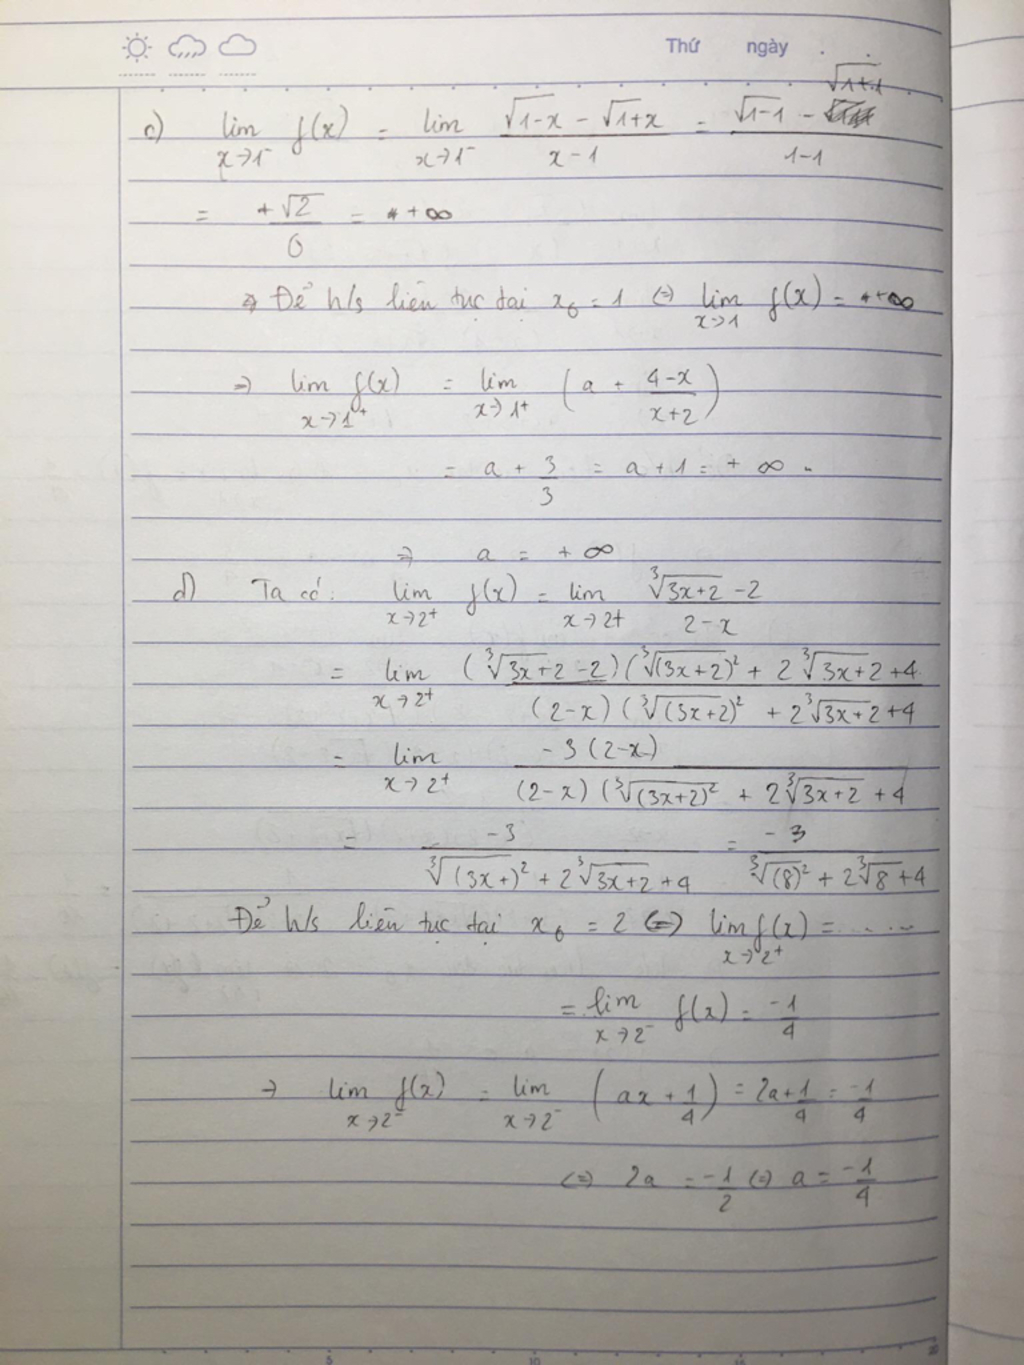 Thứ ngày . .
c) lim x→1⁻ f(x) = lim x→1⁻ (√1-x - √1+x)/(x-1) = (√1-1 - √1+1)/(1-1)
= +√2/0 = +∞
⇒ Để h/s liên tục tại x₀ = 1 (=) lim x→1 f(x) = +∞
⇒ lim x→1⁺ f(x) = lim x→1⁺ (a + (4-x)/(x+2))
= a + 3/3 = a + 1 = +∞.
⇒ a = +∞
d) Ta có: lim x→2⁺ f(x) = lim x→2⁺ (∛3x+2 - 2)/(2-x)
= lim x→2⁺ (∛3x+2 - 2)(∛(3x+2)² + 2∛3x+2 + 4 / (2-x)(∛(3x+2)² + 2∛3x+2 + 4
= lim x→2⁺ -3(2-x) / (2-x)(∛(3x+2)² + 2∛3x+2 + 4
= -3 / ∛(3x+)² + 2∛3x+2 + 4 = -3 / ∛(8)² + 2∛8 + 4
Để h/s liên tục tại x₀ = 2 (=) lim x→2⁺ f(x) = .....
= lim x→2⁻ f(x) = -1/4
→ lim x→2⁻ f(x) = lim x→2⁻ (ax + 1/4) = 2a + 1/4 = -1/4
(=) 2a = -1/2 (=) a = -1/4
5 10 15